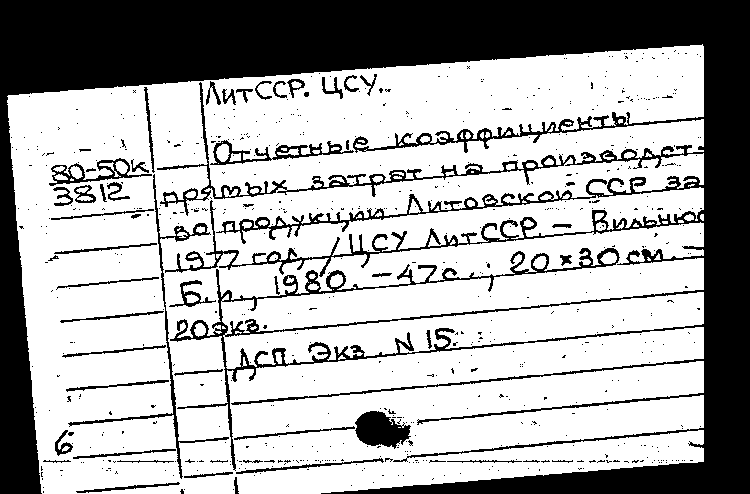 ЛитССР. ЦСУ.
Отчетные коэффициенты
80-50к
3812
прямых затрат на производст-
во продукции Литовской ССР за
1977 год / ЦСУ ЛитССР. – Вильнюс
Б.и., 1980. – 47с. ; 20×30 см. –
20экз.
ДСП. Экз. N 15.
6